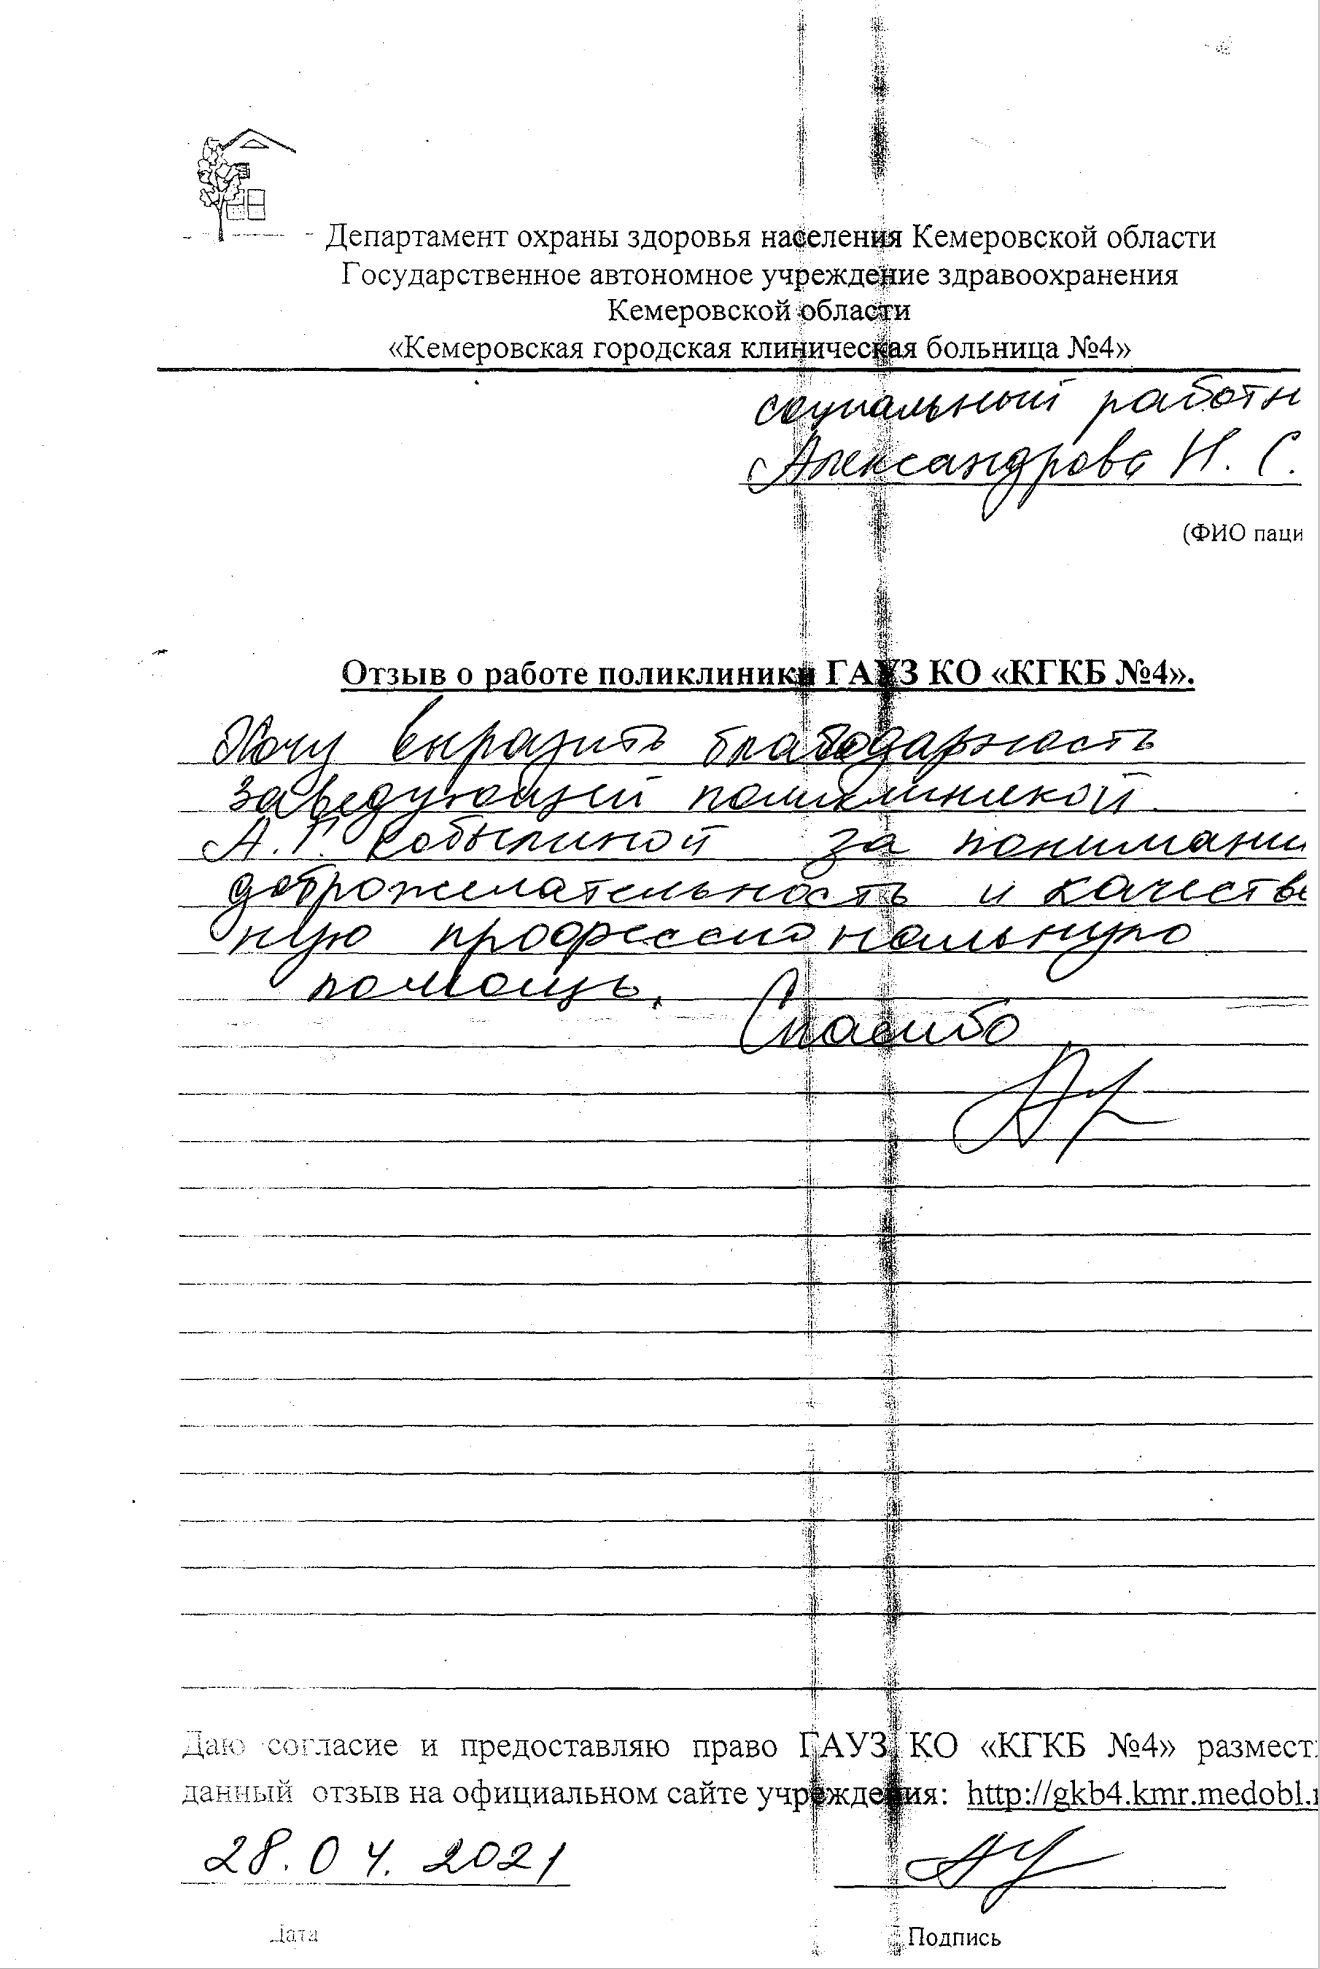 Департамент охраны здоровья населения Кемеровской области
Государственное автономное учреждение здравоохранения
Кемеровской области
«Кемеровская городская клиническая больница №4»
социальный работн
Александрова Н. С.
(ФИО паци
Отзыв о работе поликлиники ГАУЗ КО «КГКБ №4».
Хочу выразить благодарность
заведующей поликлиникой
А.Г. Кобылиной за понимани
доброжелательность и качестве
ную профессиональную
помощь.
Спасибо
Даю согласие и предоставляю право ГАУЗ КО «КГКБ №4» размест
данный отзыв на официальном сайте учреждения: http://gkb4.kmr.medobl.r
28.04.2021
Дата
Подпись